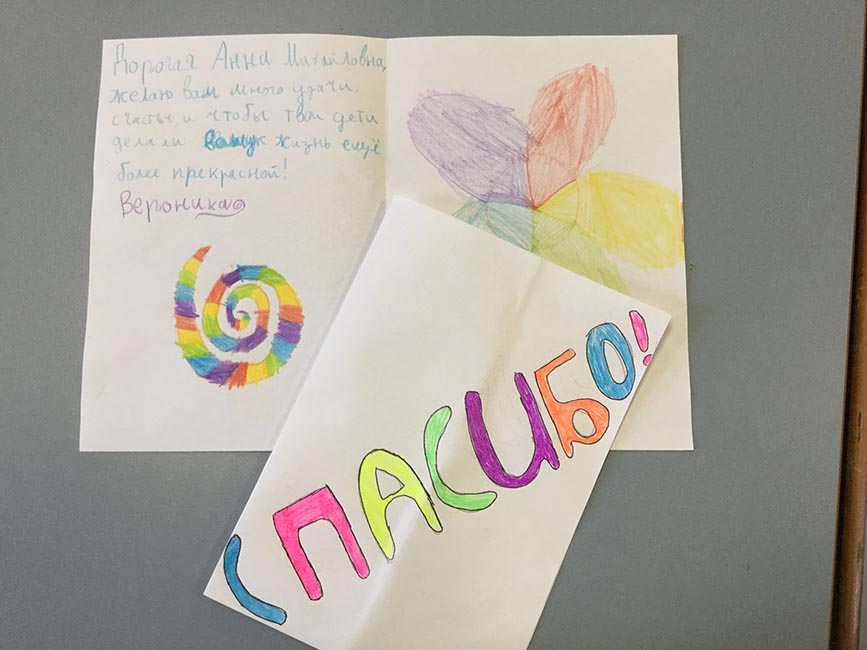 Дорогая Анна Михайловна,
желаю вам много удачи,
счастья, и чтобы твои дети
делали вашу жизнь ещё
более прекрасной!
Вероника
СПАСИБО!